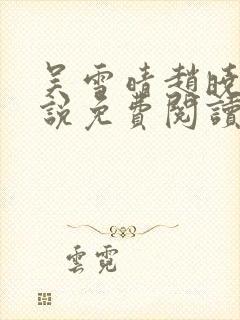 吴雪晴趙晓
說免費閱讀
雲霓